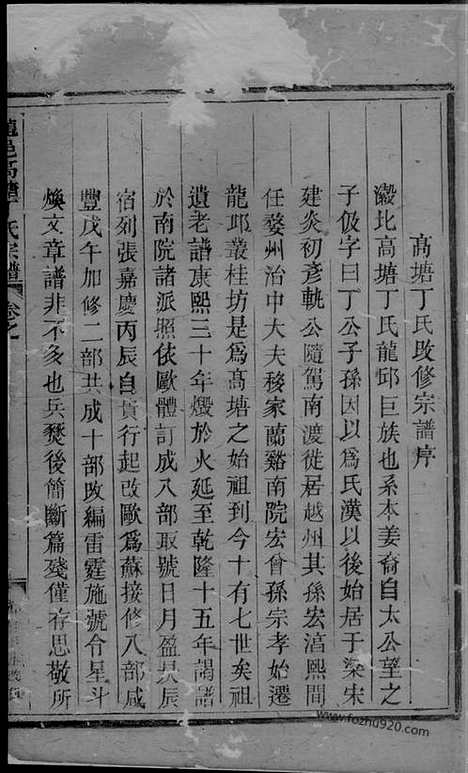 高塘丁氏改修宗譜序
瀫北高塘丁氏龍邱巨族也系本姜裔自太公望之
子伋字曰丁公子孫因以爲氏漢以後始居于梁宋
建炎初彥軌公隨駕南渡徙居越州其孫宏湻熙間
任婺州治中大夫移家蘭谿南院宏曾孫宗孝始遷
龍邱叢桂坊是爲高塘之始祖到今十有七世矣祖
遺老譜康熙三十年燬於火延至乾隆十五年謁譜
於南院諸派照依歐體訂成八部取號日月盈昃辰
宿列張嘉慶丙辰自貢行起改歐爲蘇接修八部咸
豐戊午加修二部共成十部改編雷霆施號令星斗
煥文章譜非不多也兵燹後簡斷篇殘僅存思敬所
邑高塘丁氏宗譜
卷之
www.fozhu920.com